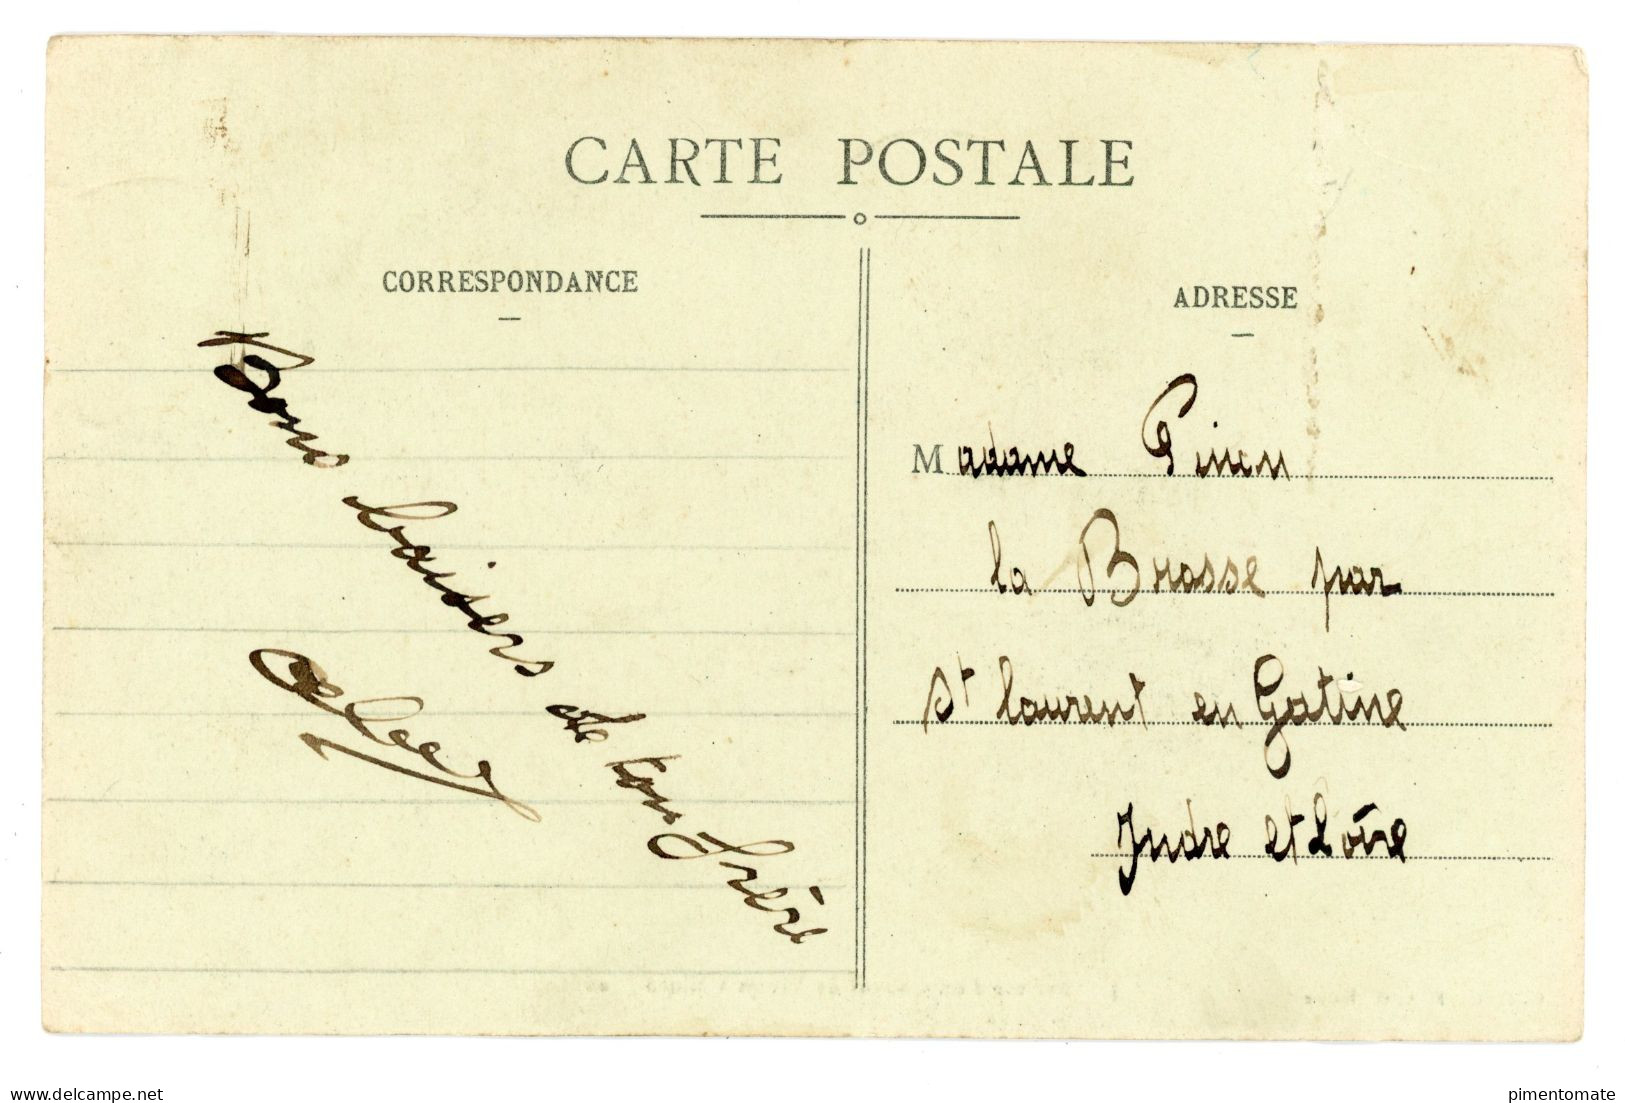 CARTE POSTALE
CORRESPONDANCE
Bons baisers de ton frère
ADRESSE
Madame Pinon
la Brosse par
St Laurent en Gatine
Indre et Loire
delcampe.net
pimentomate